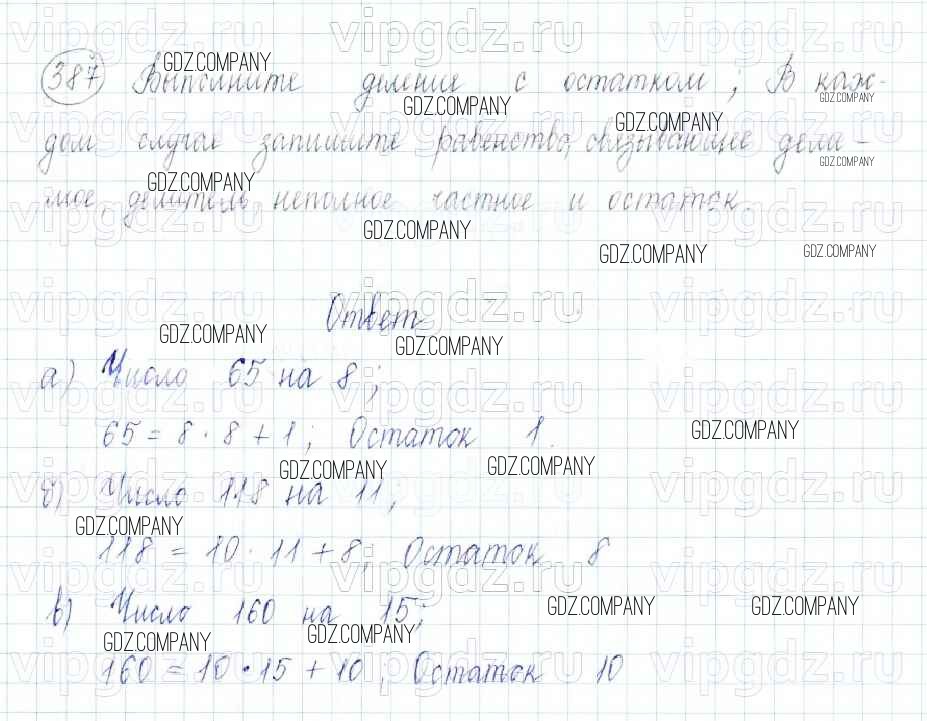 387 Выполните деление с остатком; В каж-
дом случае запишите равенство, связывающее дели-
мое, делитель, неполное частное и остаток.
Ответ
а) Число 65 на 8;
65 = 8 · 8 + 1; Остаток 1.
б) Число 118 на 11;
118 = 10 · 11 + 8; Остаток 8
в) Число 160 на 15;
160 = 10 · 15 + 10; Остаток 10
vipgdz.ru
GDZ.COMPANY